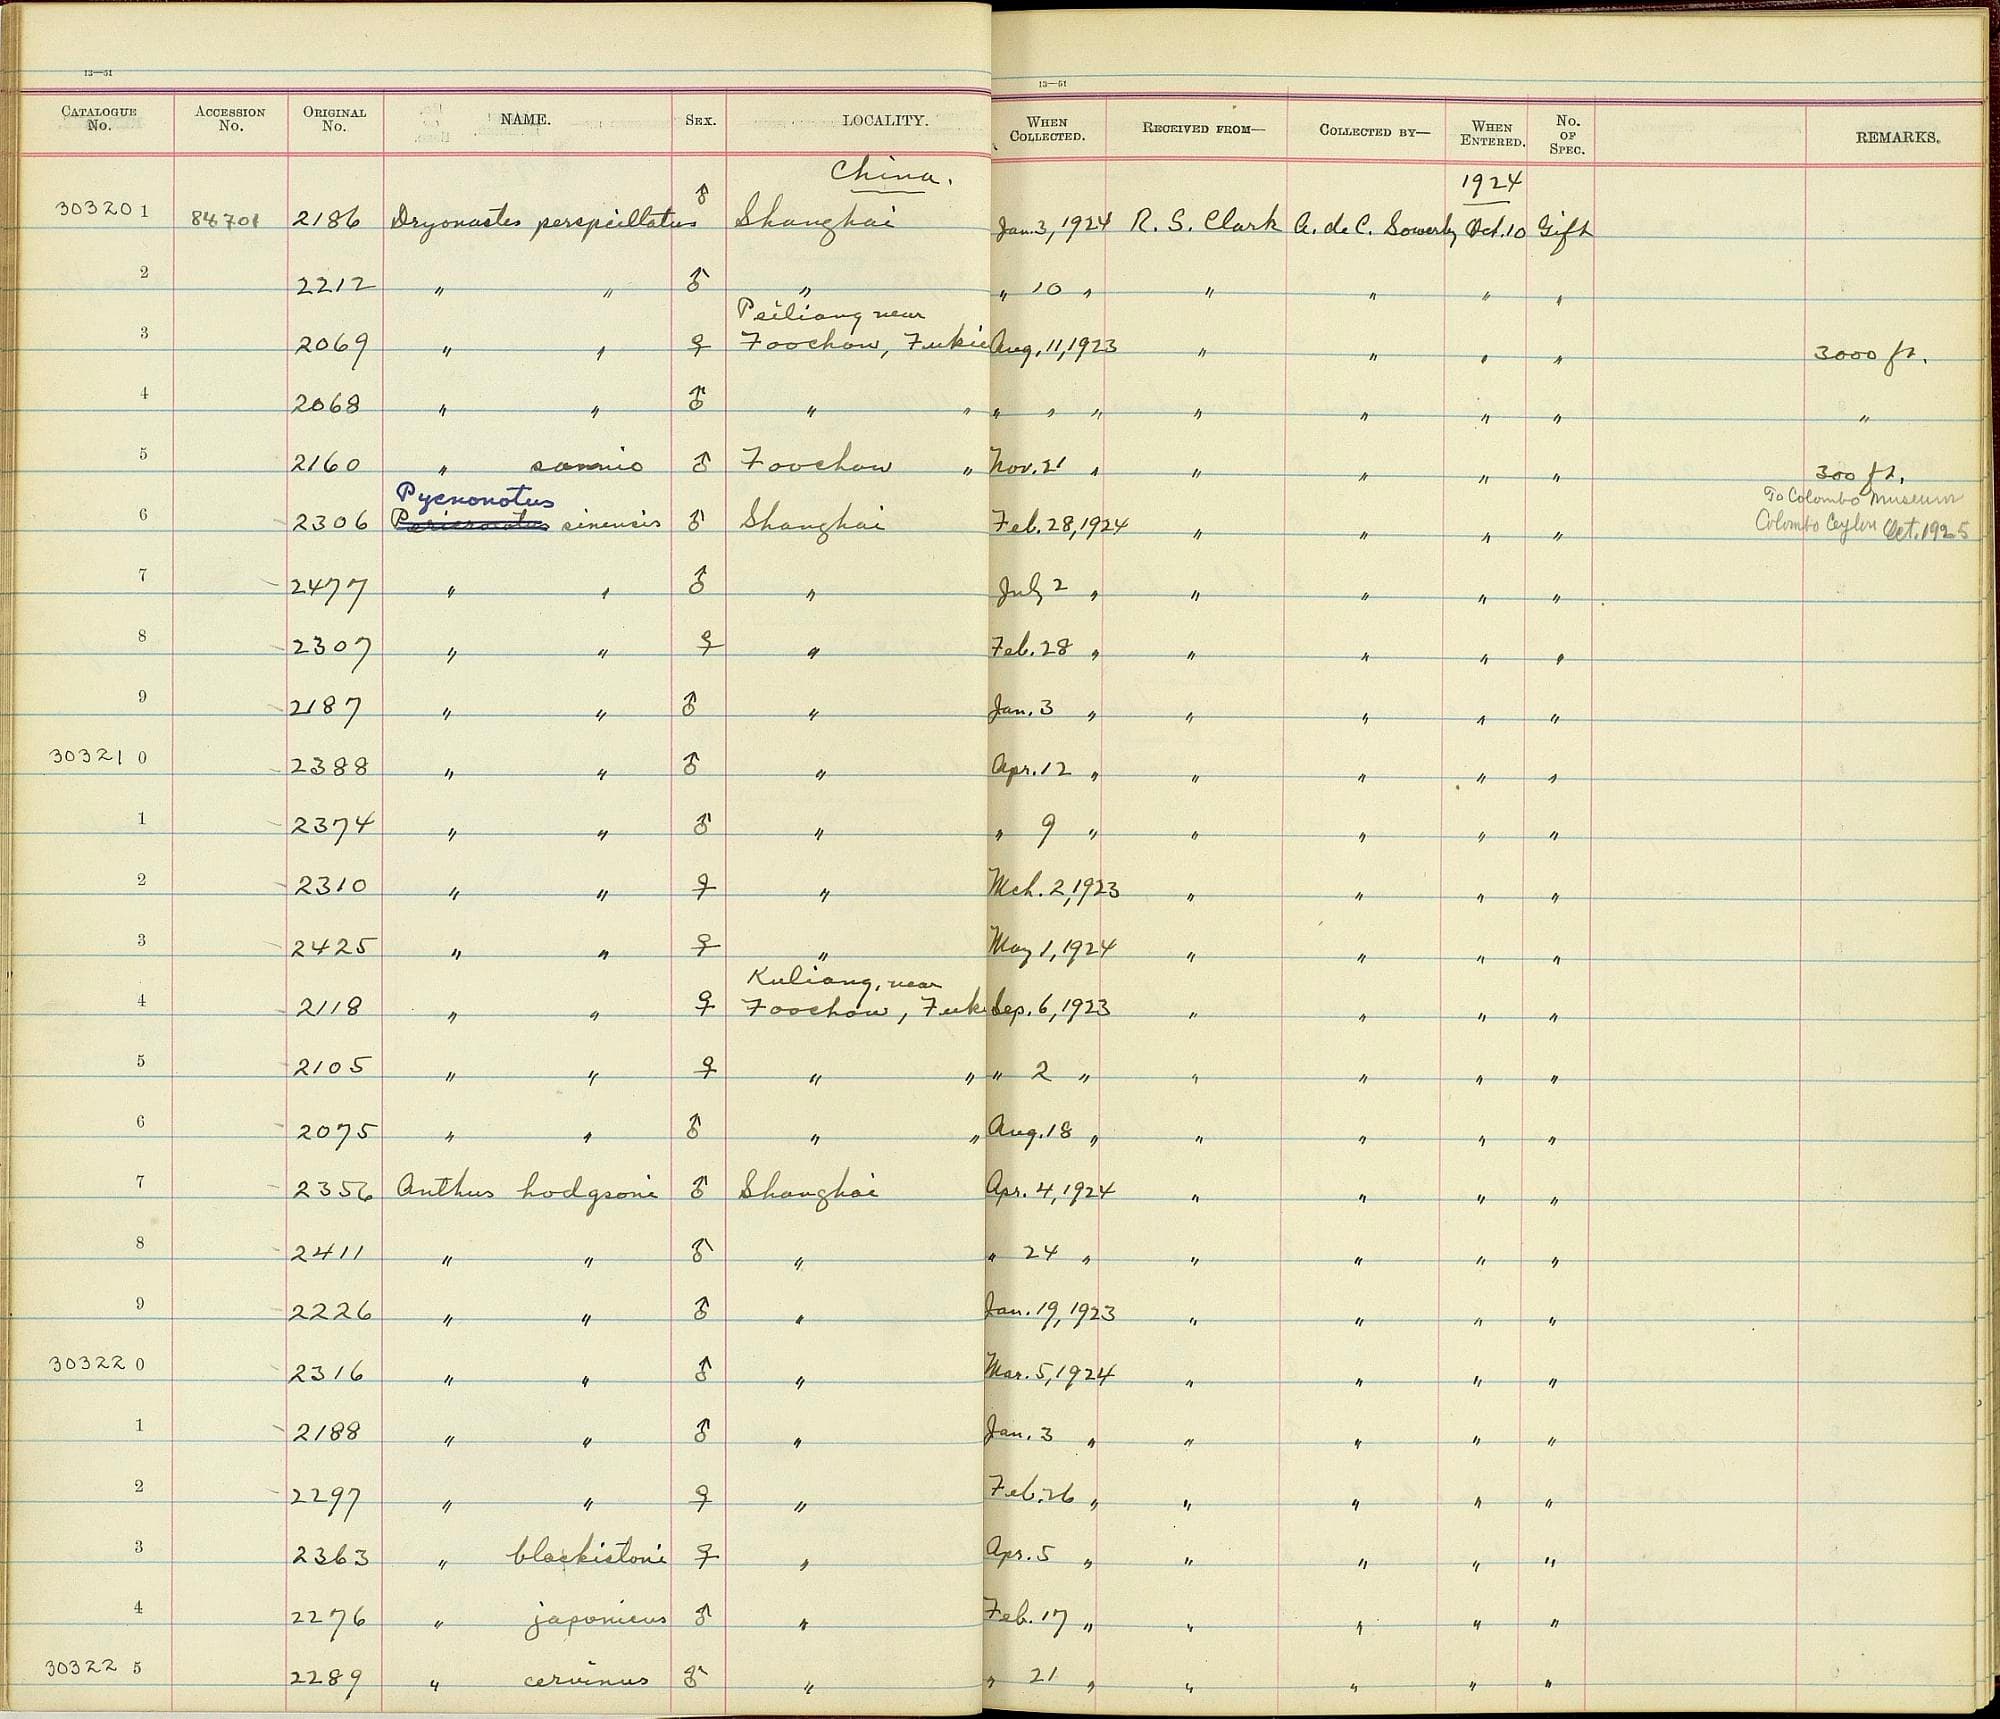 13—51
13—51
CATALOGUE No. ACCESSION No. ORIGINAL No. NAME. SEX. LOCALITY. WHEN COLLECTED. RECEIVED FROM— COLLECTED BY— WHEN ENTERED. No. OF SPEC. REMARKS.
China. 1924
303201 84701 2186 Dryonastes perspicillatus ♂ Shanghai Jan. 3, 1924 R. S. Clark A. de C. Sowerby Oct. 10 Gift
2 2212 " " ♂ " " 10 " " " " "
Peiliang near
3 2069 " " ♀ Foochow, Fukie Aug. 11, 1923 " " " " 3000 ft.
4 2068 " " ♂ " " " " " " " " " "
5 2160 " sannio ♂ Foochow " Nov. 21 " " " " " 300 ft.
Pycnonotus To Colombo Museum
6 2306 sinensis ♂ Shanghai Feb. 28, 1924 " " " " Colombo Ceylon Oct. 1925
7 2477 " " ♂ " July 2 " " " " "
8 2307 " " ♀ " Feb. 28 " " " " "
9 2187 " " ♂ " Jan. 3 " " " " "
303210 2388 " " ♂ " Apr. 12 " " " " "
1 2374 " " ♂ " " 9 " " " " "
2 2310 " " ♀ " Mch. 2, 1923 " " " "
3 2425 " " ♀ " May 1, 1924 " " " "
Kuliang, near
4 2118 " " ♀ Foochow, Fuk Sep. 6, 1923 " " " "
5 2105 " " ♀ " " " 2 " " " " "
6 2075 " " ♂ " " Aug. 18 " " " " "
7 2356 Anthus hodgsoni ♂ Shanghai Apr. 4, 1924 " " " "
8 2411 " " ♂ " " 24 " " " " "
9 2226 " " ♂ " Jan. 19, 1923 " " " "
303220 2316 " " ♂ " Mar. 5, 1924 " " " "
1 2188 " " ♂ " Jan. 3 " " " " "
2 2297 " " ♀ " Feb. 26 " " " " "
3 2363 " blackistoni ♀ " Apr. 5 " " " " "
4 2276 " japonicus ♂ " Feb. 17 " " " " "
303225 2289 " cervinus ♂ " " 21 " " " " "